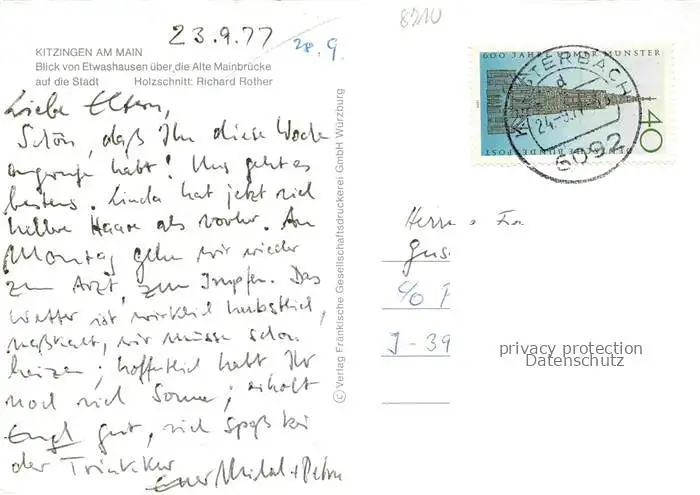 23.9.77
28.9.
8710
KITZINGEN AM MAIN
Blick von Etwashausen über die Alte Mainbrücke
auf die Stadt Holzschnitt: Richard Rother
Liebe Eltern,
Schön, daß Ihr diese Woche
angerufen habt! Uns geht es
bestens. Linda hat jetzt viel
hellere Haare als vorher. Am
Montag gehn wir wieder
zum Arzt, zum Impfen. Das
Wetter ist wirklich herbstlich,
naßkalt, wir müssen schon
heizen; hoffentlich habt Ihr
noch viel Sonne; erholt
Euch gut, viel Spaß bei
der Trinkkur
Eure Michael + Petra
© Verlag Fränkische Gesellschaftsdruckerei GmbH Würzburg
600 JAHRE ULMER MÜNSTER
DEUTSCHE BUNDESPOST
40
KELSTERBACH
d
24.-9.77
6092
Herrn + Fr
Gus
c/o
I-39
privacy protection
Datenschutz